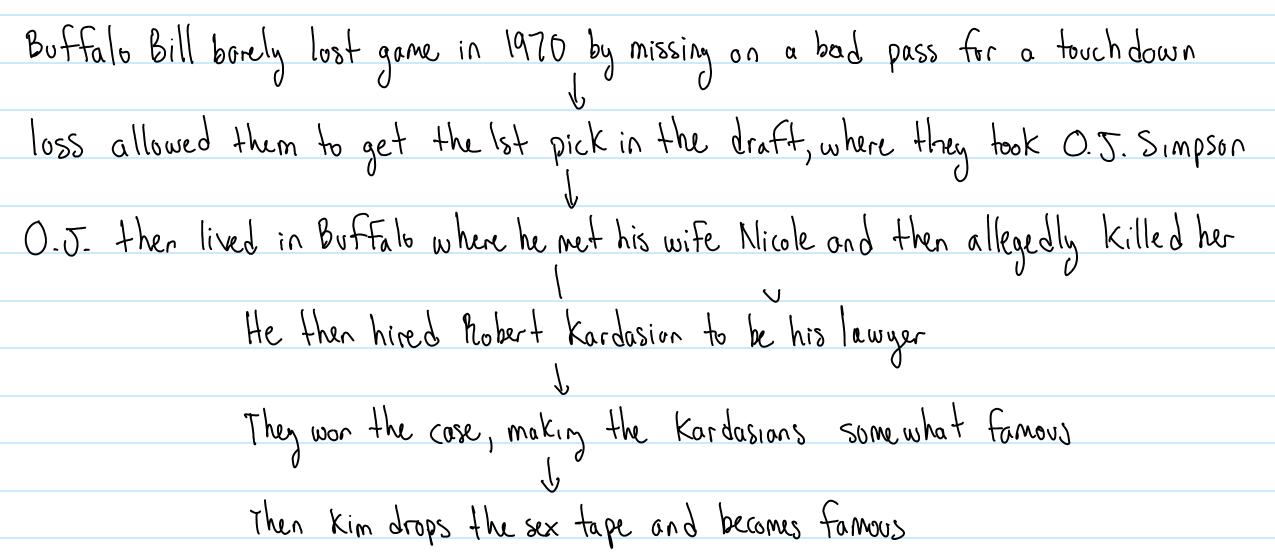 Buffalo Bill barely lost game in 1970 by missing on a bad pass for a touchdown
loss allowed them to get the 1st pick in the draft, where they took O.J. Simpson
O.J. then lived in Buffalo where he met his wife Nicole and then allegedly killed her
He then hired Robert Kardasian to be his lawyer
They won the case, making the Kardasians somewhat famous
Then Kim drops the sex tape and becomes famous